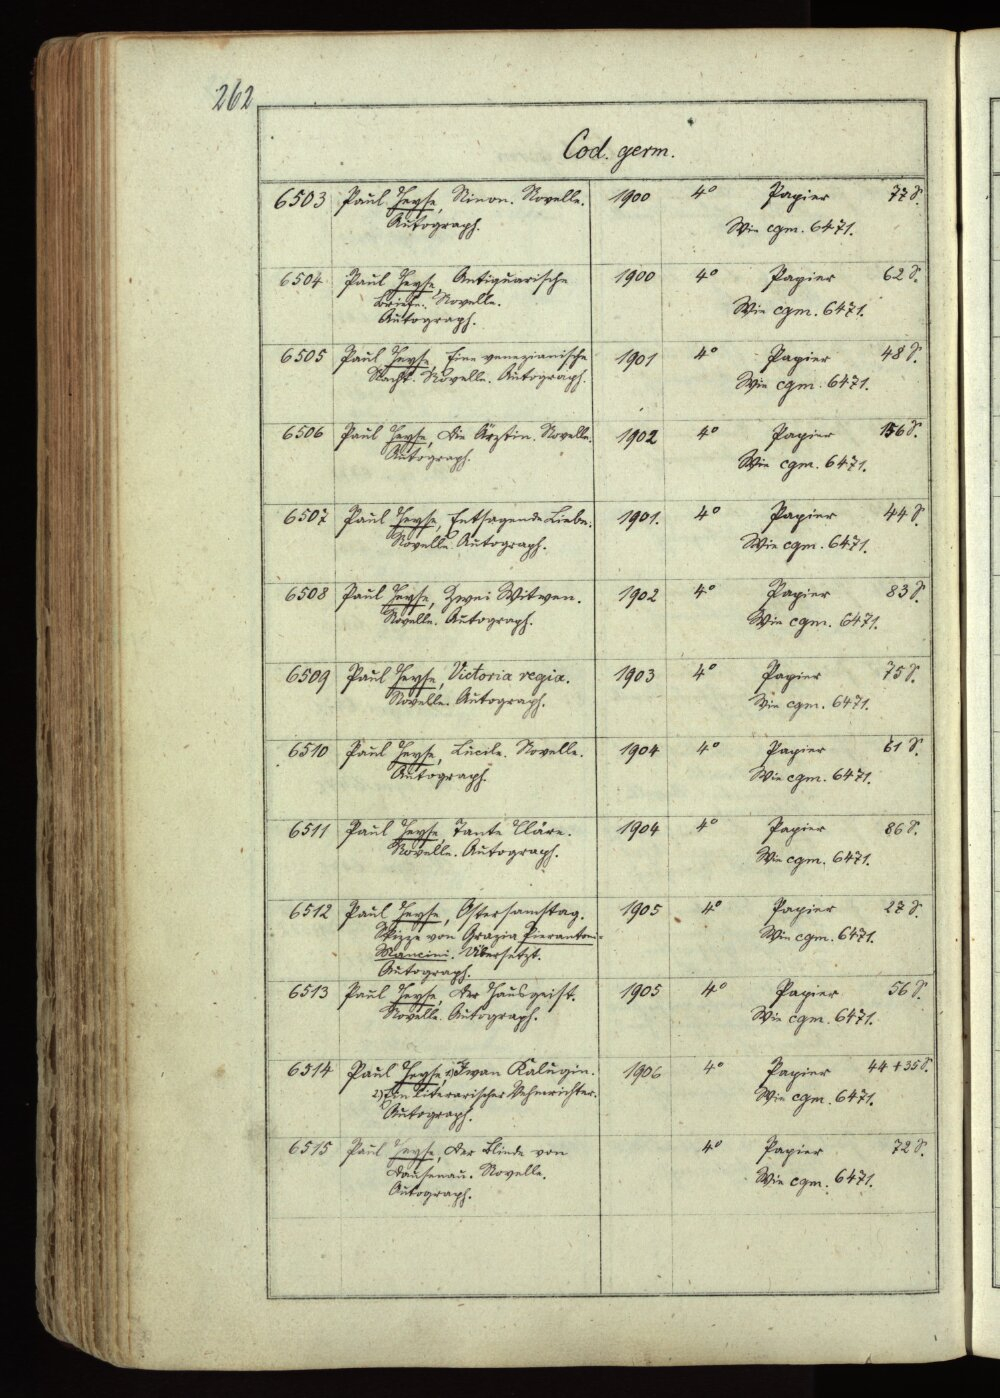 262
Cod. germ.
6503 Paul Heyse, Ninon. Novelle. 1900 4° Papier 77 S.
Autograph. Wie cgm. 6471.
6504 Paul Heyse, Antiquarische 1900 4° Papier 62 S.
Briefe. Novelle. Wie cgm. 6471.
Autograph.
6505 Paul Heyse, Eine venezianische 1901 4° Papier 48 S.
Nacht. Novelle. Autograph. Wie cgm. 6471.
6506 Paul Heyse, Die Ärztin. Novelle. 1902 4° Papier 156 S.
Autograph. Wie cgm. 6471.
6507 Paul Heyse, Entsagende Liebe. 1901. 4° Papier 44 S.
Novelle. Autograph. Wie cgm. 6471.
6508 Paul Heyse, Zwei Witwen. 1902 4° Papier 83 S.
Novelle. Autograph. Wie cgm. 6471.
6509 Paul Heyse, Victoria regia. 1903 4° Papier 75 S.
Novelle. Autograph. Wie cgm. 6471.
6510 Paul Heyse, Lucile. Novelle. 1904 4° Papier 61 S.
Autograph. Wie cgm. 6471.
6511 Paul Heyse, Tante Kläre. 1904 4° Papier 86 S.
Novelle. Autograph. Wie cgm. 6471.
6512 Paul Heyse, Ostersamstag. 1905 4° Papier 27 S.
Skizze von Grazia Pierantoni- Wie cgm. 6471.
Mancini. Übersetzt.
Autograph.
6513 Paul Heyse, Der Hausgeist. 1905 4° Papier 56 S.
Novelle. Autograph. Wie cgm. 6471.
6514 Paul Heyse, 1) Iwan Kalugin. 1906 4° Papier 44 + 35 S.
2) Ein literarischer Vehmrichter. Wie cgm. 6471.
Autograph.
6515 Paul Heyse, Der Blinde von 4° Papier 72 S.
Dausenau. Novelle. Wie cgm. 6471.
Autograph.